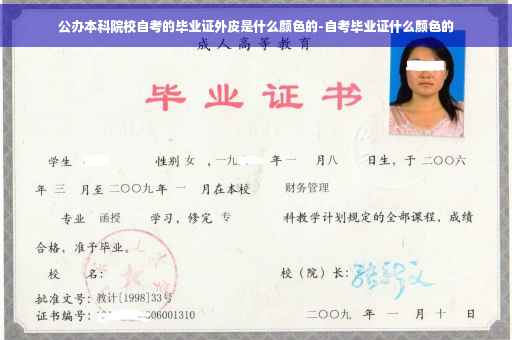 公办本科院校自考的毕业证外皮是什么颜色的-自考毕业证什么颜色的
成人高等教育
毕业证书
学生 性别 女 ,一九 年一 月八 日生,于二〇〇六
年 三 月至二〇〇九年 一 月在本校 财务管理
专业 函授 学习,修完 专 科教学计划规定的全部课程,成绩
合格,准予毕业。
校 名: 校(院)长:
批准文号:教计[1998]33号
证书编号: 06001310 二〇〇九 年 一 月 十 日